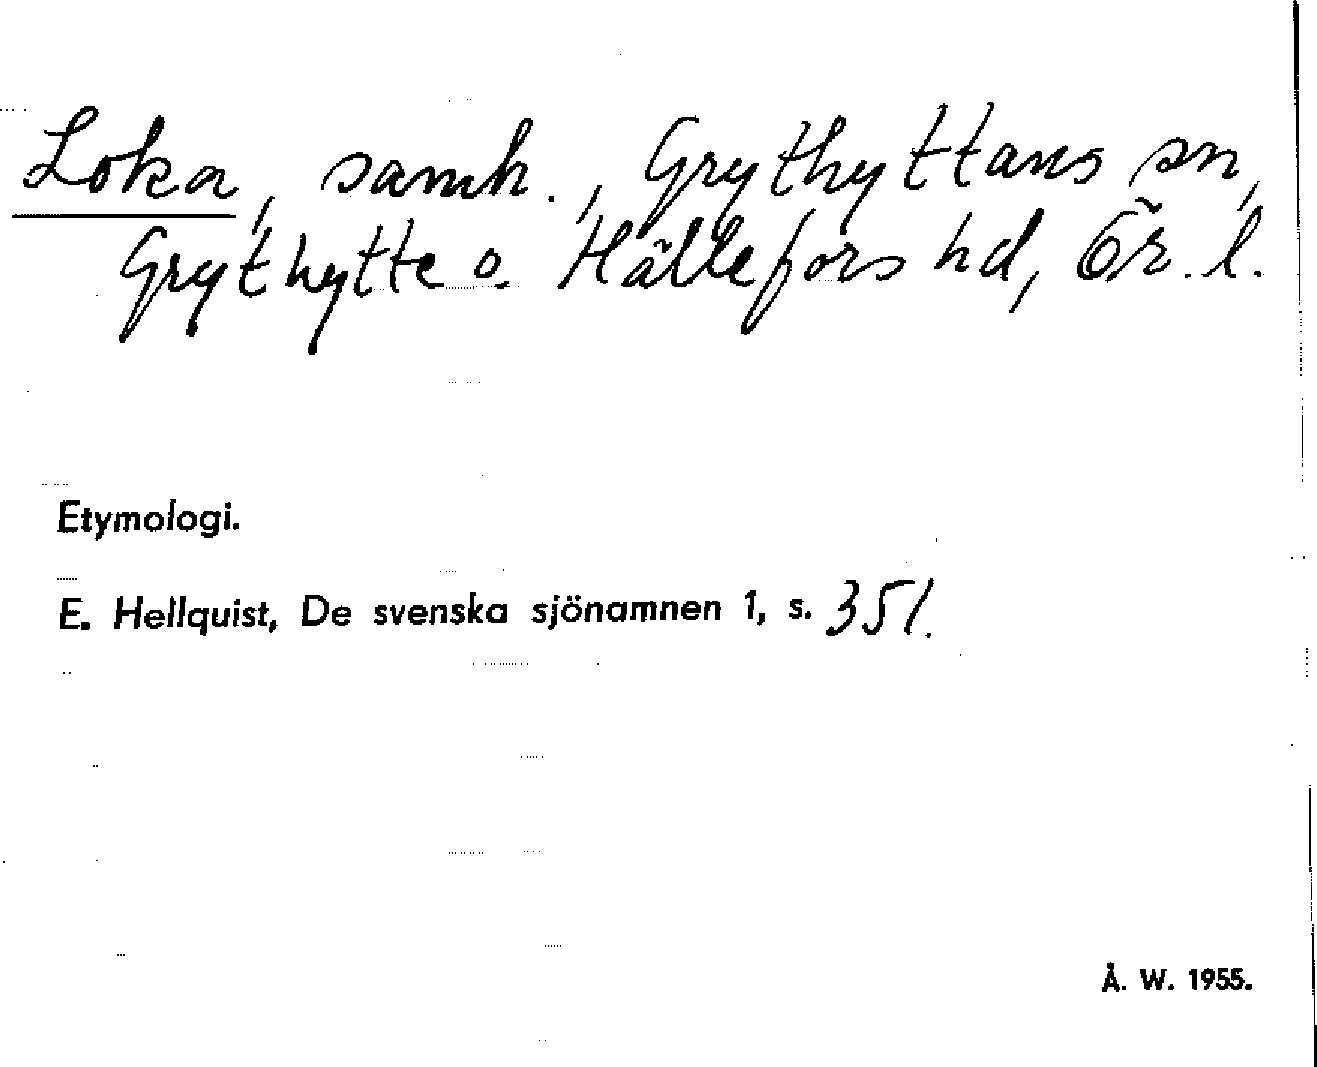 Loka, samh., Grythyttans sn,
Grythytte o. Hällefors hd, Ör. l.
Etymologi.
E. Hellquist, De svenska sjönamnen 1, s. 351.
Å. W. 1955.